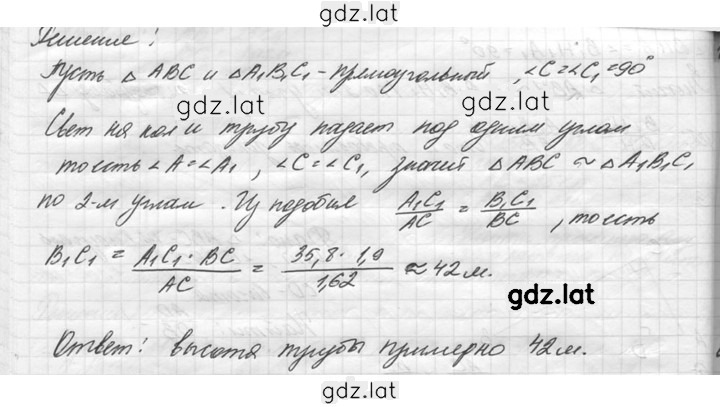 gdz.lat
Решение!
Пусть △ ABC и △A₁B₁C₁ - прямоугольный, ∠C=∠C₁=90°
gdz.lat
Свет на кол и трубу падает под одним углом
то есть ∠A=∠A₁, ∠C=∠C₁, значит △ABC ≈ △A₁B₁C₁
gdz.lat
по 2-м углам. Из подобия A₁C₁/AC = B₁C₁/BC, то есть
B₁C₁ = A₁C₁·BC/AC = 35,8·1,9/1,62 ≈ 42 м.
gdz.lat
Ответ! высота трубы примерно 42 м.
gdz.lat